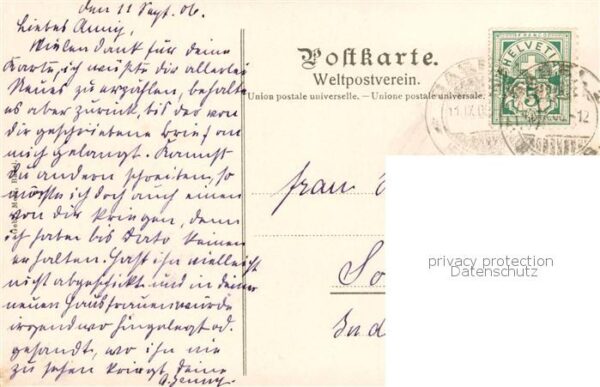 den 11 Sept. 06.
Liebes Anny,
Vielen Dank für deine
Karte, ich wüsste dir allerlei
Neues zu erzählen, behalte
es aber zurück, bis der von
dir geschriebene Brief an
mich gelangt. Kannst
du andern schreiben, so
möchte ich doch auch einen
von dir kriegen, denn
ich habe bis dato keinen
erhalten. Hast ihn vielleicht
nicht abgeschickt und in deiner
neuen Hausfrauenwürde
irgendwo hingelegt od.
gesandt, wo ihn nie
zu sehen kriegt, deine
Postkarte.
Weltpostverein.
Union postale universelle. — Unione postale universale.
FRANCO
HELVETIA
5
Frau
So
privacy protection
Datenschutz